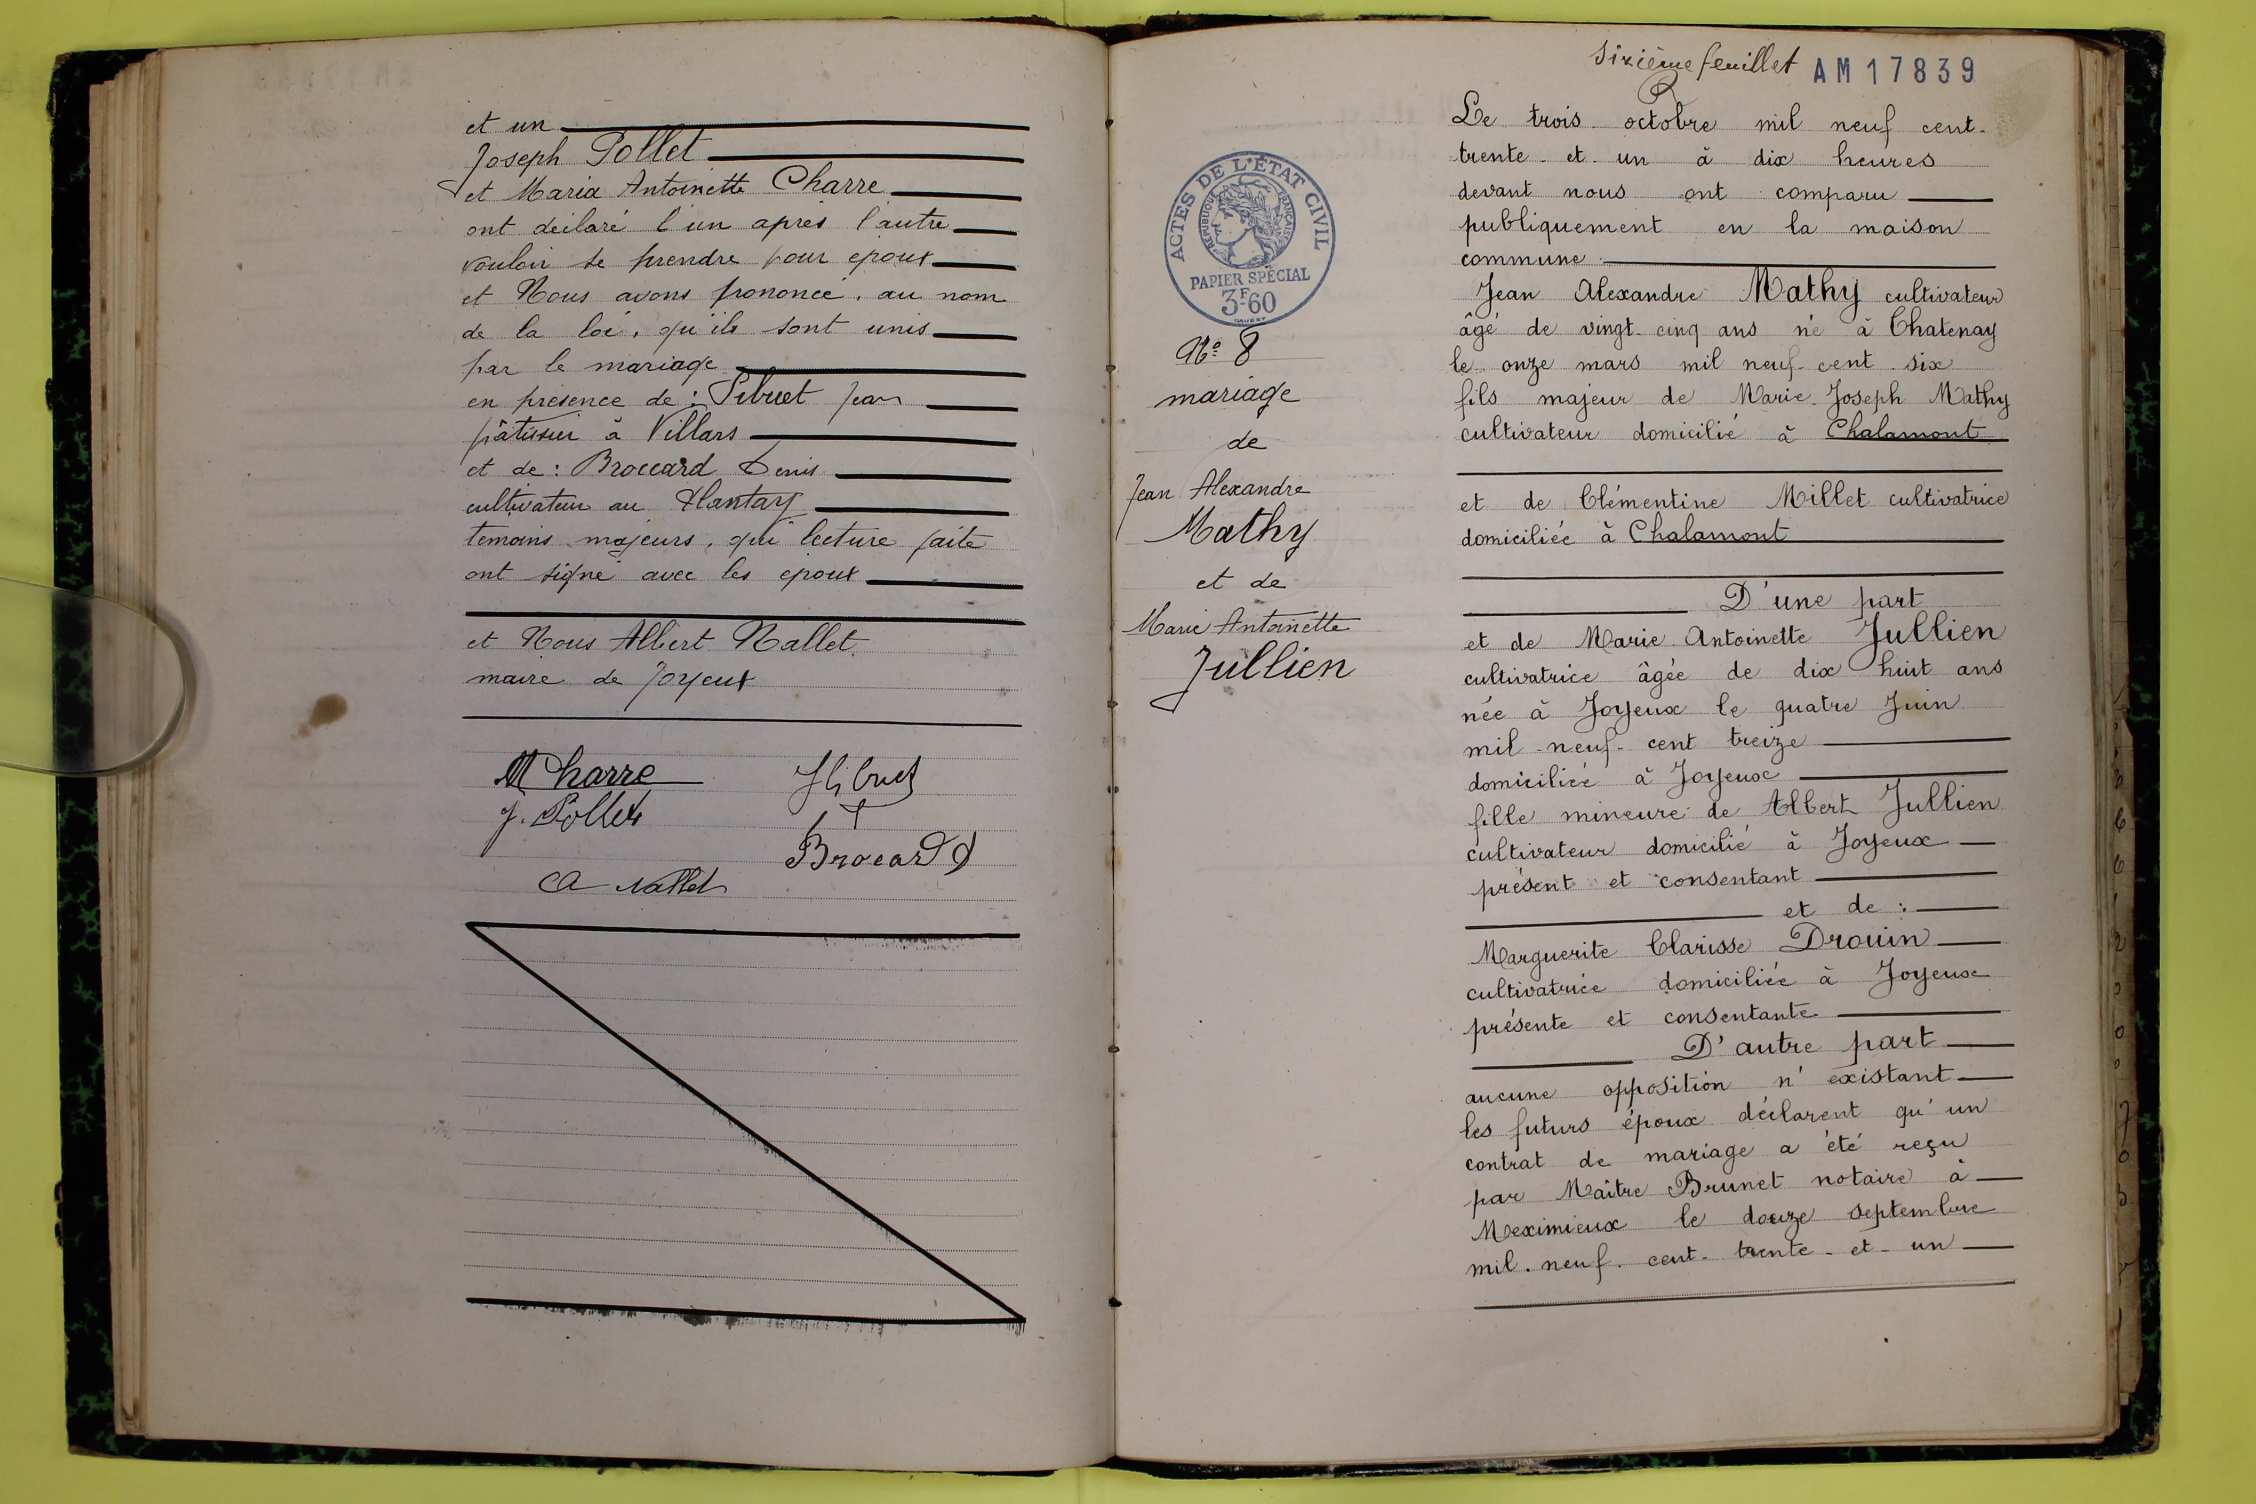 et un
Joseph Pollet
et Maria Antoinette Charre
ont déclaré l'un après l'autre
vouloir se prendre pour époux
et Nous avons prononcé, au nom
de la loi, qu'ils sont unis
par le mariage
en présence de : Sibuet Jean
pâtissier à Villars
et de : Broccard Denis
cultivateur au Plantay
temoins majeurs, qui lecture faite
ont signé avec les époux
et Nous Albert Nallet
maire de Joyeux
M Charre
J. Pollet
Brocard
A Nallet
Sixième feuillet AM17839
ACTES DE L'ÉTAT CIVIL
RÉPUBLIQUE FRANÇAISE
PAPIER SPÉCIAL
3F60
No 8
mariage
de
Jean Alexandre
Mathy
et de
Marie Antoinette
Jullien
Le trois octobre mil neuf cent-
trente-et-un à dix heures
devant nous ont comparu
publiquement en la maison
commune
Jean Alexandre Mathy cultivateur
âgé de vingt-cinq ans né à Chatenay
le onze mars mil neuf-cent-six
fils majeur de Marie-Joseph Mathy
cultivateur domicilié à Chalamont
et de Clémentine Millet cultivatrice
domiciliée à Chalamont
D'une part
et de Marie Antoinette Jullien
cultivatrice âgée de dix huit ans
née à Joyeux le quatre Juin
mil-neuf-cent treize
domiciliée à Joyeux
fille mineure de Albert Jullien
cultivateur domicilié à Joyeux
présent et consentant
et de :
Marguerite Clarisse Drouin
cultivatrice domiciliée à Joyeux
présente et consentante
D'autre part
aucune opposition n'existant
les futurs époux déclarent qu'un
contrat de mariage a été reçu
par Maître Brunet notaire à
Meximieux le douze septembre
mil-neuf-cent-trente-et-un